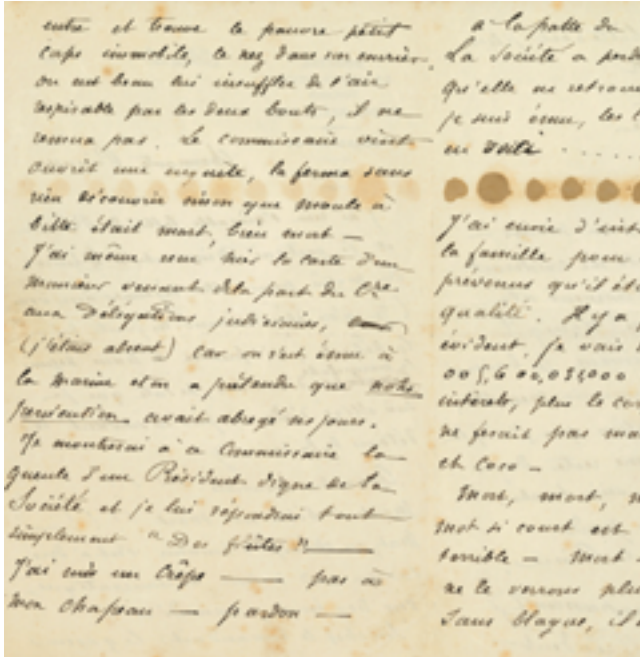 entre et trouve le pauvre petit
corps immobile, le nez dans son
on eut beau lui insuffler de l'air
respirable par les deux bouts, il ne
remua pas. Le commissaire vint
ouvrit une enquête, la ferma sans
rien découvrir sinon que moule à
bitte était mort, bien mort —
J'ai même reçu hier la carte d'un
monsieur venant de la part du Cre
aux Délégations judiciaires,
(j'étais absent) car on s'est ému à
la marine et on a prétendu que notre
avait abrégé ses jours.
Je montrerai à ce Commissaire la
gueule d'un Président digne de la
Société et je lui répondrai tout
simplement "Des flûtes" —
J'ai mis un Crêpe — pas à
mon chapeau — pardon —
a la patte du
La Société a perdu
qu'elle ne retrouve
je suis ému, les
en
J'ai envie d'
la famille pour
prévenus qu'il
qualité. Il y a
évident, je vais
intérêts, plus le
ne ferait pas
et Coco —
Mort, mort,
mot si court et
terrible — Mort —
ne le verrons plus
Sans blague, il